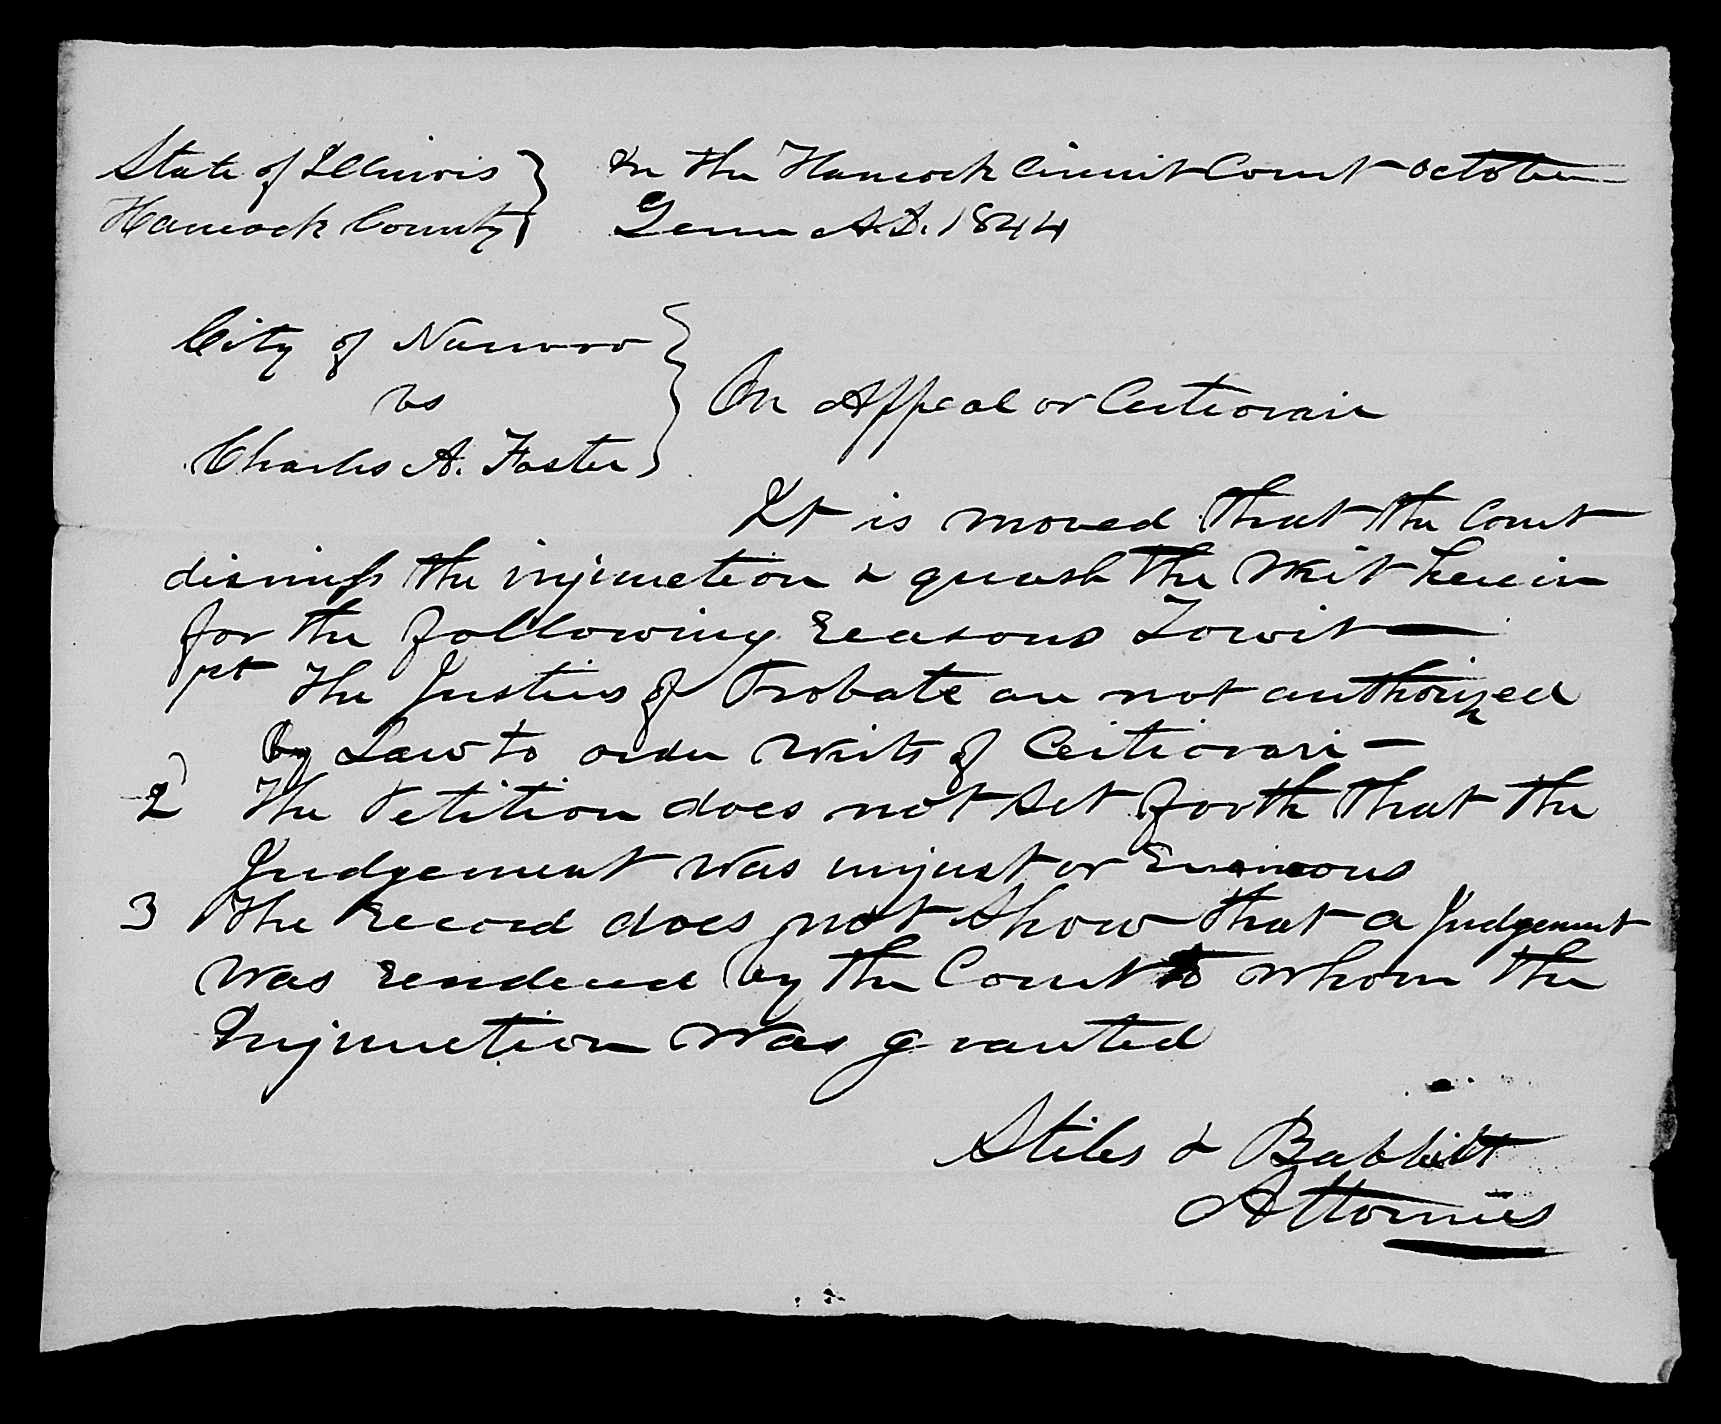 State of Illinois } In the Hancock Circuit Court October
Hancock County } Term A.D. 1844
City of Nauvoo }
vs } On Appeal or Certiorari
Charles A. Foster }
It is moved that the Court
dismiss the injunction & quash the Writ herein
for the following reasons Towit—
1st The Justices of Probate are not authorized
by Law to order Writs of Certiorari—
2 The Petition does not set forth that the
Judgement was unjust or Erronious
3 The record does not show that a Judgement
was rendered by the Court to whom the
Injunction was granted
Stiles & Babbitt
Attornies